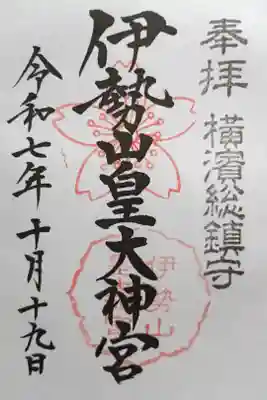 奉拝 横濱総鎮守
伊勢山皇大神宮
令和七年 十月十九日